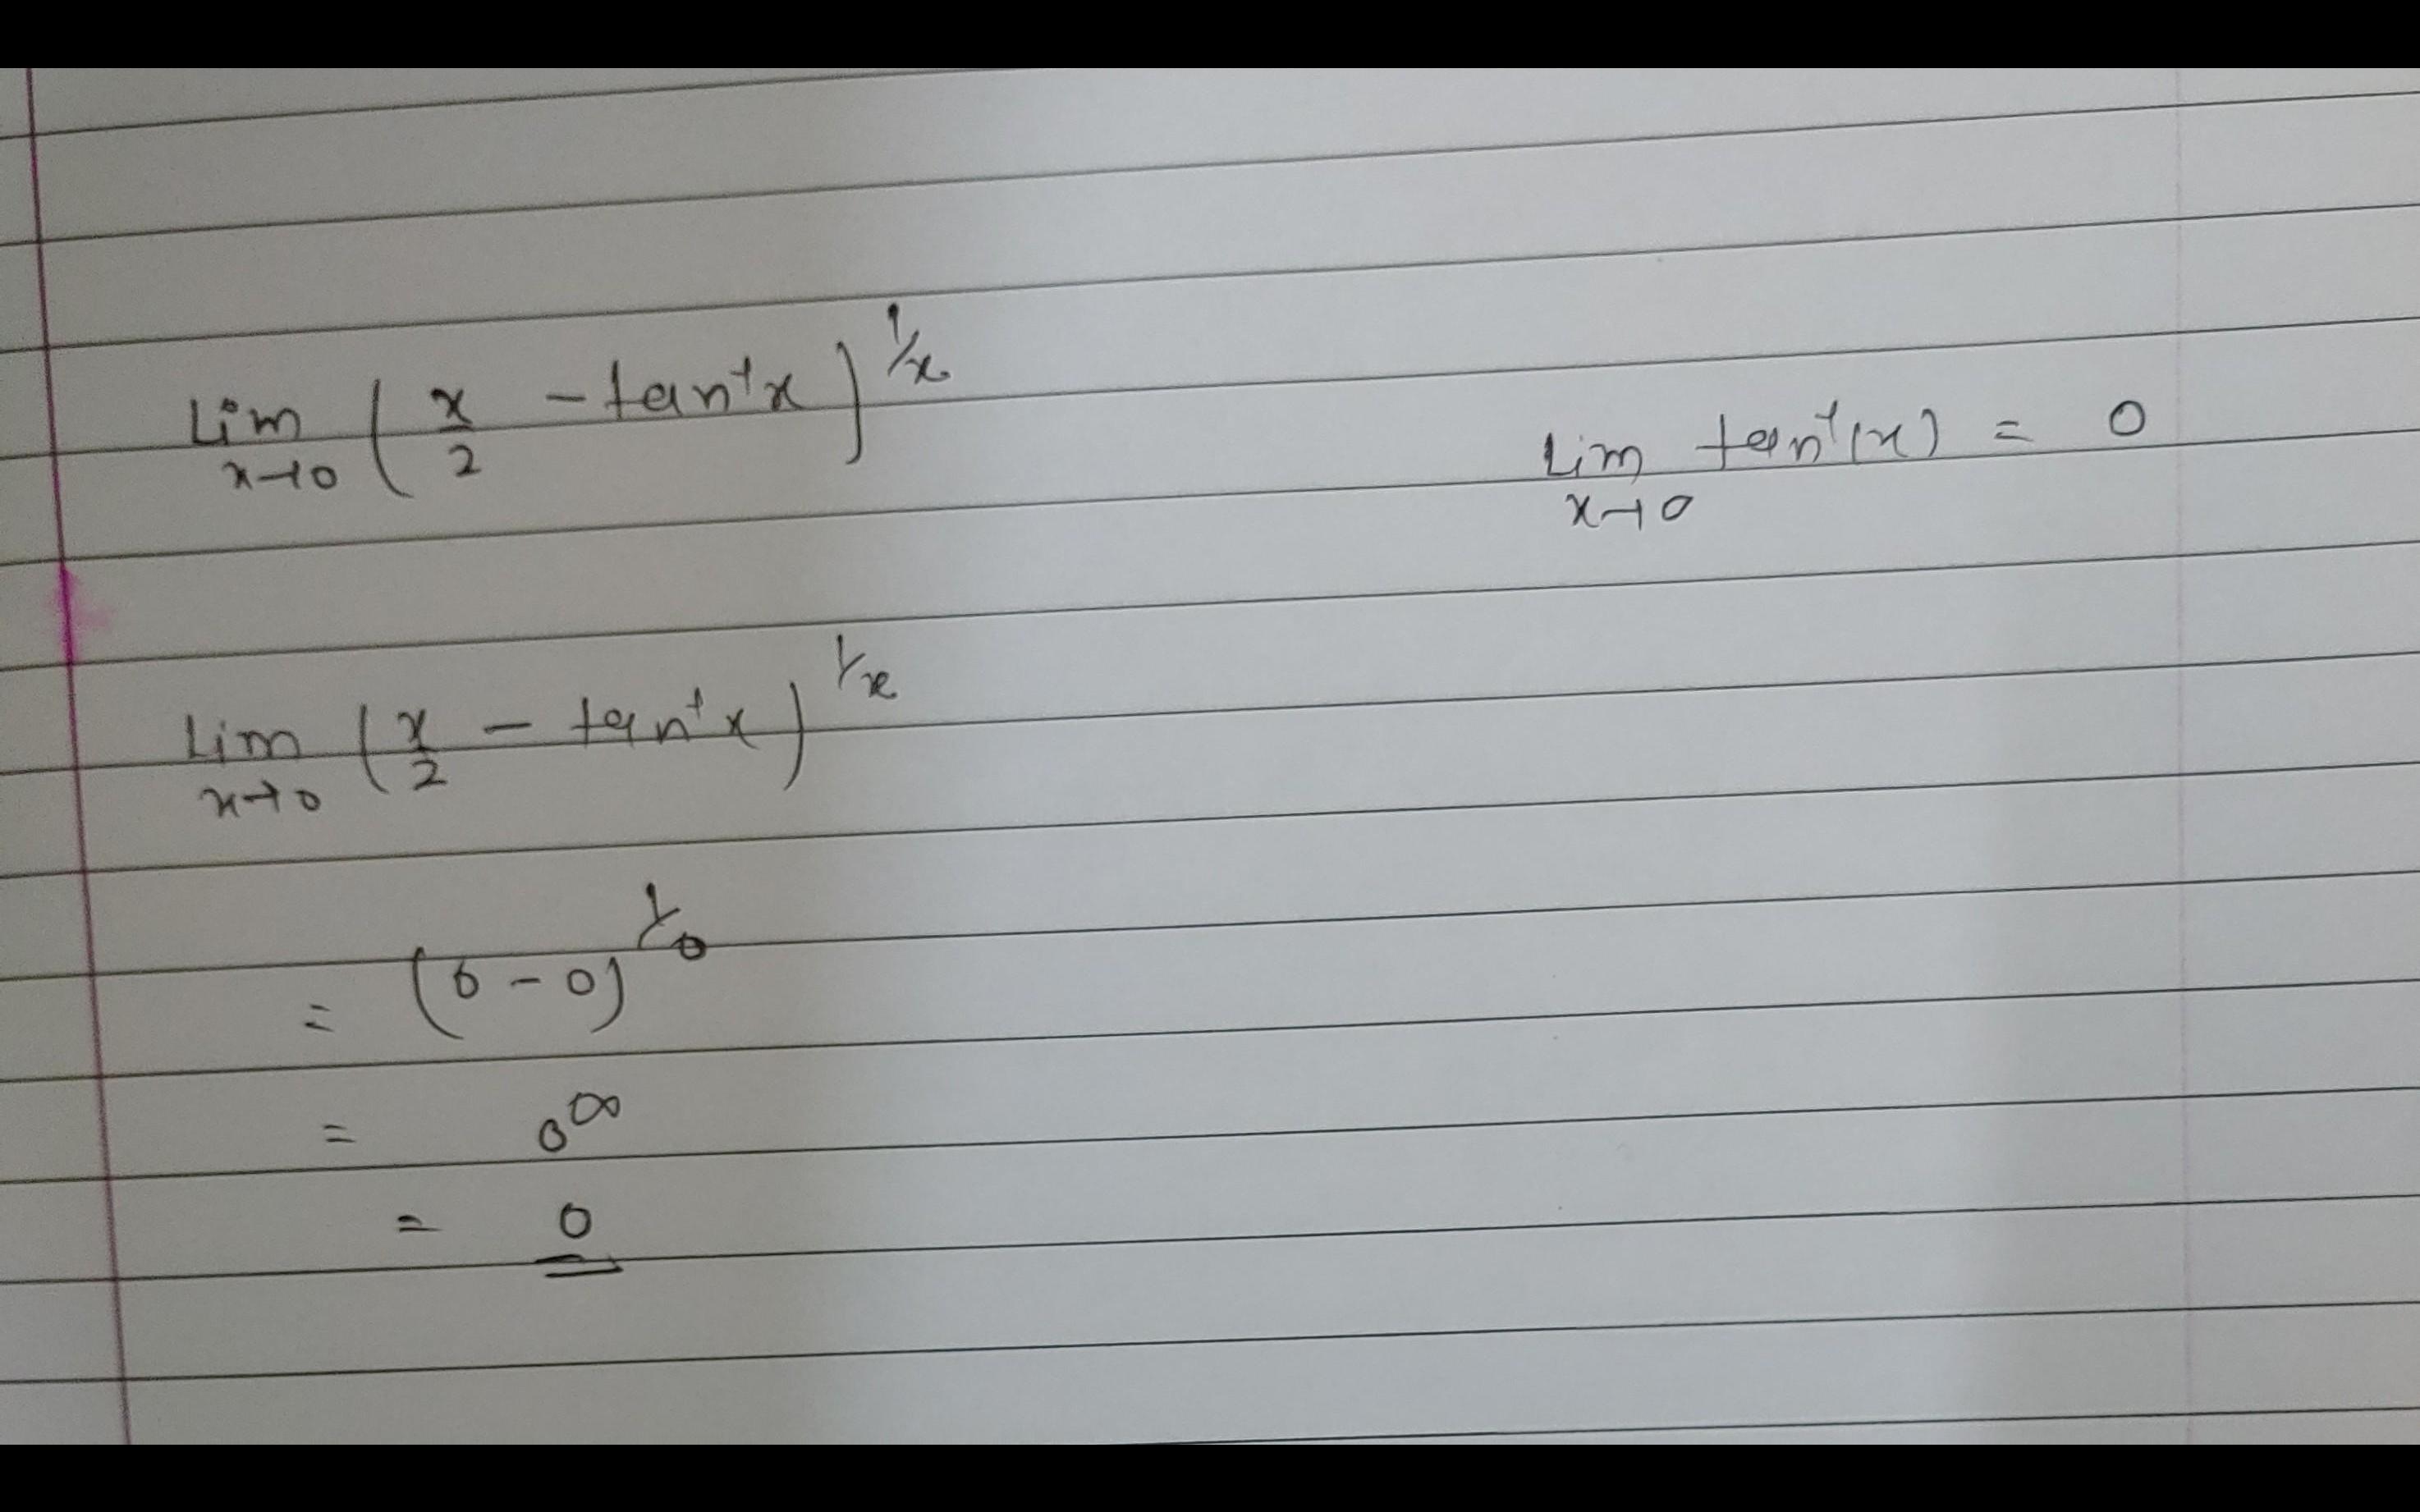 Lim x→0 (x/2 - tan⁻¹x)^1/x
Lim x→0 tan⁻¹(x) = 0
Lim x→0 (x/2 - tan⁻¹x)^1/x
= (0 - 0)^1/0
= 0^∞
= 0